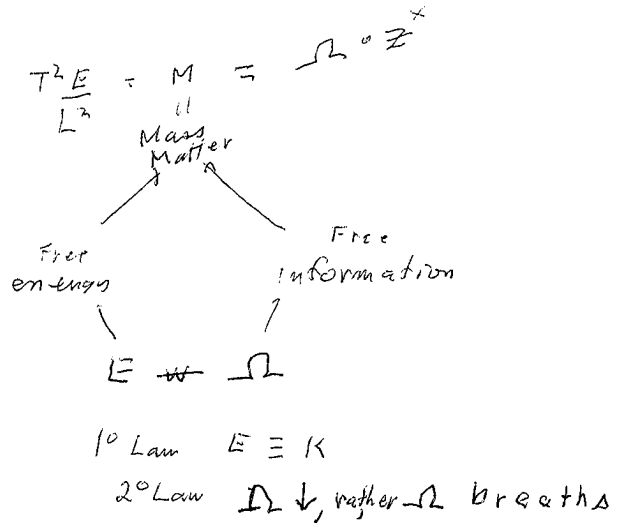 T²E/L² = M = Ω ∘ Z^x
||
Mass
Matter
Free energy
Free information
E w Ω
1º Law E ≡ K
2º Law Ω ↓, rather Ω breaths